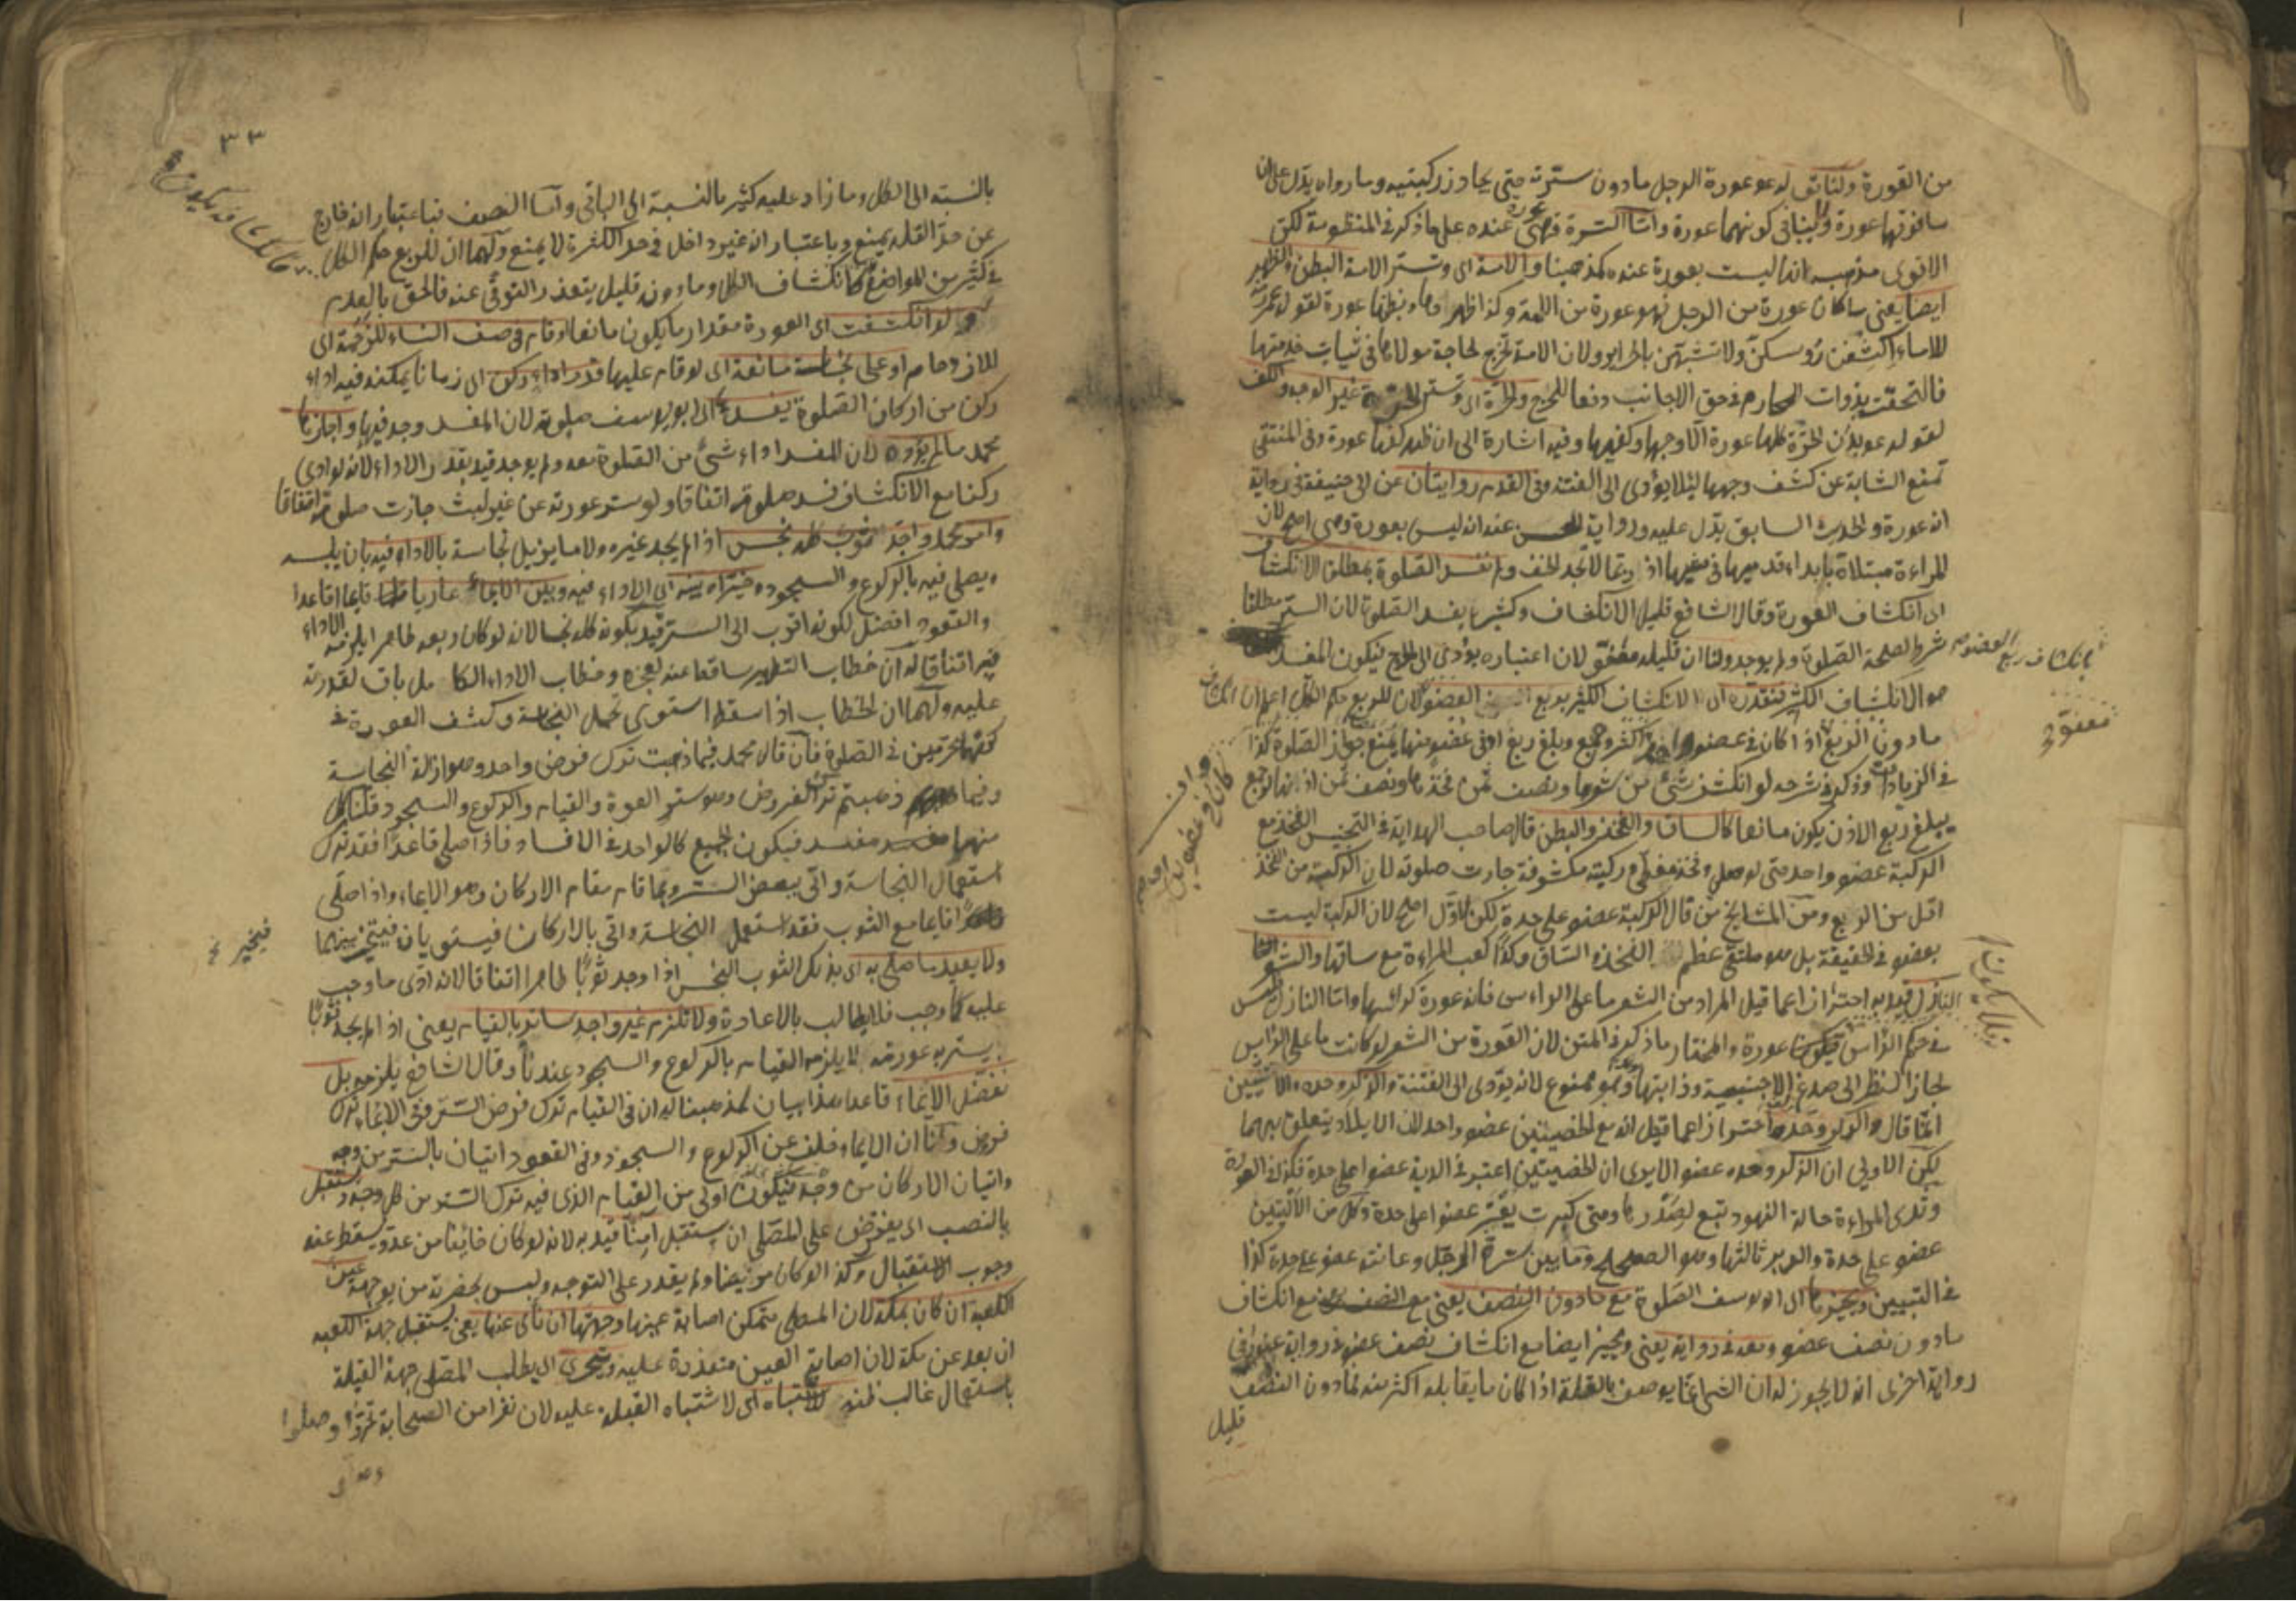 من العورة ولنا قوله عم عورة الرجل مادون سرته حتى يجاوز ركبتيه وما رواه يدل على ان
مافوقها عورة ولاينافى كونهما عورة واما السرة فهى عورة عنده على ماذكر فى المنظومة لكن
الاقوى من مذهبه انها ليست بعورة عنده كمذهبنا والامة اى وتستر الامة البطن والظهر
ايضا يعنى ماكان عورة من الرجل فهو عورة من الامة وكذا ظهرها وبطنها عورة لقول عمر
للاماء اكشفن رؤسكن ولا تشبهن بالحرائر ولان الامة تخرج لحاجة مولاها فى ثياب خدمتها
فالتحقت بذوات المحارم فى حق الاجانب دفعا للحرج والحرة اى وتستر الحرة غير الوجه والكف
لقوله عم بدن الحرة كلها عورة الا وجهها وكفيها وفيه اشارة الى ان ظهر كفها عورة وفى المنتقى
تمنع الشابة عن كشف وجهها لئلا يؤدى الى الفتنة وفى القدم روايتان عن ابى حنيفة فى رواية
انه عورة والحديث السابق يدل عليه ورواية الحسن عنه انه ليس بعورة وهى اصح لان
المراءة مبتلاة بابداء قدميها فى مشيها اذ ربما لا تجد الخف ولم نفسد الصلوة بمطلق الانكشاف
اى انكشاف العورة وقال الشافعى قليل الانكشاف وكثيره يفسد الصلوة لان الستر مطلقا
شرط لصحة الصلوة ولم يوجد ولنا ان قليله معفو لان اعتباره يؤدى الى الحرج فيكون المفسد
هو الانكشاف الكثير فنقدره اى الانكشاف الكثير بربع العضو لان للربع حكم الكل اعلم ان انكشاف
مادون الربع اذا كان فى عضو واحد اكثر وجمع وبلغ ربع ادنى عضو منها يمنع جواز الصلوة كذا
فى الزيادات وذكر فى شرحه لو انكشف شئ من شعرها ونصف ثمن فخذها ونصف ثمن اذنها لو جمع
يبلغ ربع الاذن يكون مانعا كالساق والفخذ والبطن قال صاحب الهداية فى التجنيس الفخذ مع
الركبة عضو واحد حتى لو صلى وفخذه مغطى وركبته مكشوفة جازت صلوته لان الركبة من الفخذ
اقل من الربع ومن المشايخ من قال الركبة عضو على حدة لكن الاول اصح لان الركبة ليست
بعضو فى الحقيقة بل هو ملتقى عظم الفخذ والساق وكذا كعب المراءة مع ساقها والشعر
النازل قيد به احترازا عما قيل المراد من الشعر ما على الراءس فانه عورة كراسها واما النازل فليس
فى حكم الراس فيكون عورة والمختار ماذكر فى المتن لان العورة من الشعر لو كانت ما على الراس
لجاز النظر الى صدغ الاجنبية وذوابتها وهو ممنوع لانه يؤدى الى الفتنة والذكر وحده والانثيين
انما قال والذكر وحده احترازا عما قيل انه مع الخصيتين عضو واحد لان الايلاد يتعلق بهما
لكن الاولى ان الذكر وحده عضو الا يرى ان الخصيتين اعتبر فى الدية عضوا على حدة فكذا فى العورة
وثدى المراءة حالة النهود تبع لصدرها ومتى كبرت يعتبر عضوا على حدة وكل من الاليتين
عضو على حدة والدبر ثالثها وهو الصحيح ومابين سرة الرجل وعانته عضو على حدة كذا
فى التبيين ويجيزها اى ابو يوسف الصلوة مع مادون النصف يعنى مع انكشاف
مادون نصف عضو ومعه فى رواية يعنى ويجيز ايضا مع انكشاف نصف عضو فى رواية عنه وفى
رواية اخرى انه لايجوز له ان الشئ انما يوصف بالقلة اذا كان ما يقابله اكثر منه فمادون النصف
قليل
بانكشاف ربع العضو
معفو
كان فى عضو
فلا يكون
٣٣
بالنسبة الى الكل وما زاد عليه كثير بالنسبة الى الباقى واما النصف فباعتبار انه خارج
عن حد القلة يمنع وباعتبار انه غير داخل فى حد الكثرة لا يمنع ولهما ان للربع حكم الكل
فى كثير من المواضع كانكشاف الكل ومادونه قليل يتعذر التوقى عنه فالحق بالعدم
ولو انكشفت اى العورة مقدار مايكون مانعا او قام فى صف النساء للزحمة اى
للازدحام او على نجاسة مانعة اى لو قام عليها قدر اداء ركن اى زمانا يمكنه فيه اداء
ركن من اركان الصلوة يفسد اى ابو يوسف صلوته لان المفسد وجد فيها واجازها
محمد مالم يؤده لان المفسد اداء شئ من الصلوة معه ولم يوجد قيد بقدر الاداء لانه لو ادى
ركنا مع الانكشاف فسد صلوته اتفاقا ولو ستر عورته عن غير لبث جازت صلوته اتفاقا
وامر محمد واجد ثوب كله نجس اذا لم يجد غيره ولا ما يزيل نجاسة بالاداء فيه بان يلبسه
ويصلى فيه بالركوع والسجود وخيراه بينه اى الاداء فيه وبين الايماء عاريا قائما اقاعدا
والقعود افضل لكونه اقرب الى الستر قيد بكونه كله نجسا لانه لو كان ربعه طاهرا يلزمه الاداء
فيه اتفاقا له ان خطاب التطهير ساقط عنه لعجزه وخطاب الاداء الكامل باق لقدرته
عليه ولهما ان الخطاب اذا سقط استوى حمل النجاسة وكشف العورة فى
كونهما محرمين فى الصلوة فان قال محمد فيما ذهبت ترك فرض واحد وهو ازالة النجاسة
وفيما ذهبتم ترك الفروض وهو ستر العورة والقيام والركوع والسجود قلنا كل
منهما مفسد فيكون الجميع كالواحد فى الافساد فاذا صلى قاعدا فقد ترك
استعمال النجاسة واتى ببعض الستر وبما قام مقام الاركان وهو الايماء واذا صلى
قائما مع الثوب فقد استعمل النجاسة واتى بالاركان فيستويان فيتخير بينهما
ولا يعيد ما صلى به اى بذلك الثوب النجس اذا وجد ثوبا طاهرا اتفاقا لانه ادى ما وجب
عليه كما وجب فلا يطالب بالاعادة ولا نلزم غير واجد ساتر بالقيام يعنى اذا لم يجد ثوبا
يستر به عورته لا يلزمه القيام بالركوع والسجود عندنا وقال الشافعى يلزمه بل
نفضل الايماء قاعدا هذا بيان لمذهبنا له ان فى القيام ترك فرض الستر وفى الايماء ترك
فروض ولنا ان الايماء خلف عن الركوع والسجود وفى القعود اتيان بالستر من وجه
واتيان الاركان من وجه فيكون اولى من القيام الذى فيه ترك الستر من كل وجه ويستقبل
بالنصب اى يفترض على المصلى ان يستقبل آمنا قيد به لانه لو كان خائفا من عدو يسقط عنه
وجوب الاستقبال وكذا لو كان مريضا ولم يقدر على التوجه وليس بحضرته من يوجهه عين
الكعبة ان كان بمكة لان المصلى متمكن اصابة عينها وجهتها ان نأى عنها يعنى يستقبل جهة الكعبه
ان بعد عن مكة لان اصابة العين متعذرة عليه ويتحرى اى يطلب المصلى جهة القبلة
باستعمال غالب ظنه للاشتباه اى لاشتباه القبلة عليه لان نفرا من الصحابة تحروا وصلوا
فيخير